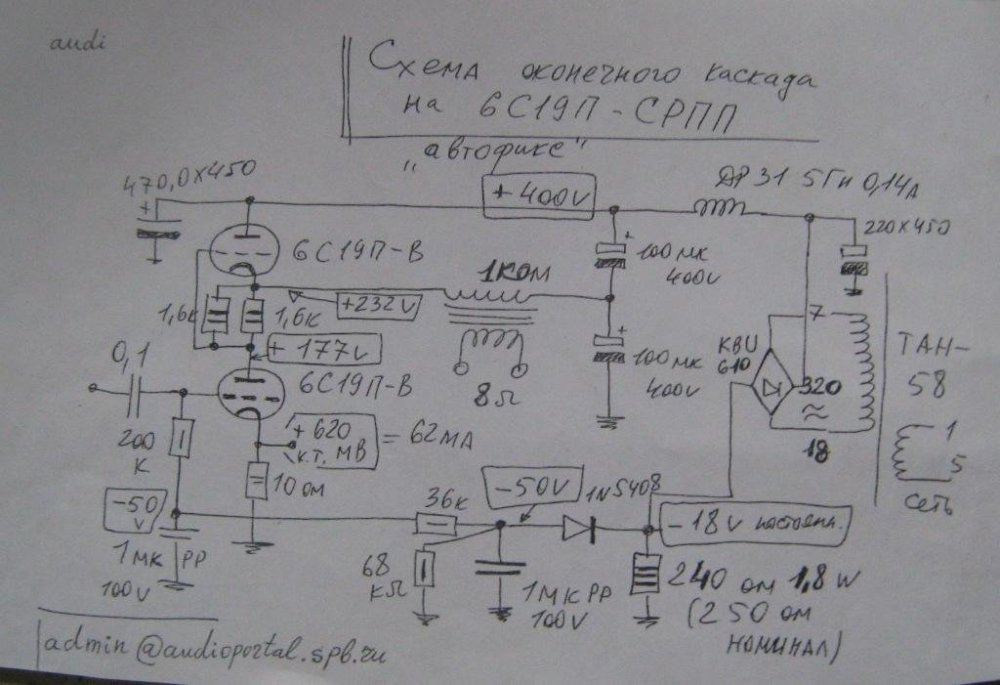 audi
Схема оконечного каскада
на 6С19П-СРПП
„автофикс"
470,0х450
+
+400V
ДР31 5Гн 0,14А
220х450
6С19П-В
+
100 мк
400V
1КОМ
+232V
1,6к
1,6к
+177V
0,1
6С19П-В
8Ω
+
100 мк
400V
KBU
610
7
320
≈
18
ТАН-
58
1
5
сеть
200
К
+620
К.Т. МВ
= 62МА
10 ом
-50
V
36к
-50V
1N5408
-18V постоянн.
1 мк РР
100V
68
КΩ
1МК РР
100V
240 ом 1,8W
(250 ом
номинал)
admin@audioportal.spb.ru